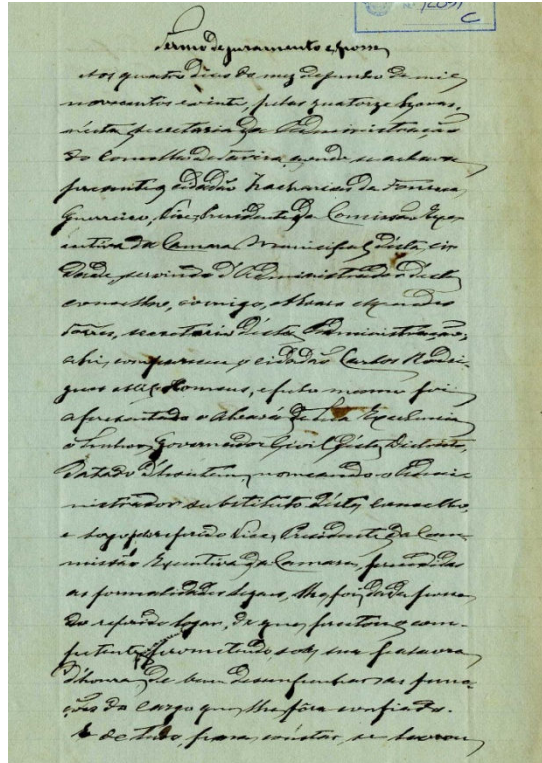 12091
C
Termo de juramento e posse
Aos quatro dias do mez de junho de mil
novecentos e vinte, pelas quatorze horas,
n'esta secretaria da Administração
do Concelho de Tavira, aonde se achava
presente o cidadão Zacharias da Fonseca
Guerreiro, Vice-Presidente da Comissão Exe-
cutiva da Camara Municipal d'esta ci-
dade, servindo d'Administrador d'este
concelho, comigo, Alvaro Mendes
Torres, secretario d'esta Administração,
ahi, compareceu o cidadão Carlos Rodri-
gues Mil-Homens, e pelo mesmo foi
apresentado o Alvará de Sua Excelencia
o Senhor Governador Civil d'este Districto,
datado d'hontem, nomeando-o Admi-
nistrador substituto d'este concelho,
e logo pelo referido Vice-Presidente da Com-
missão Executiva da Camara, preenchidas
as formalidades legaes, lhe foi dada posse
do referido logar, de que prestou o com-
petente prometendo, sob sua palavra
d'honra, de bem desempenhar as func-
ções do cargo que lhe fôra confiado.
E de tudo, para constar, se lavrou